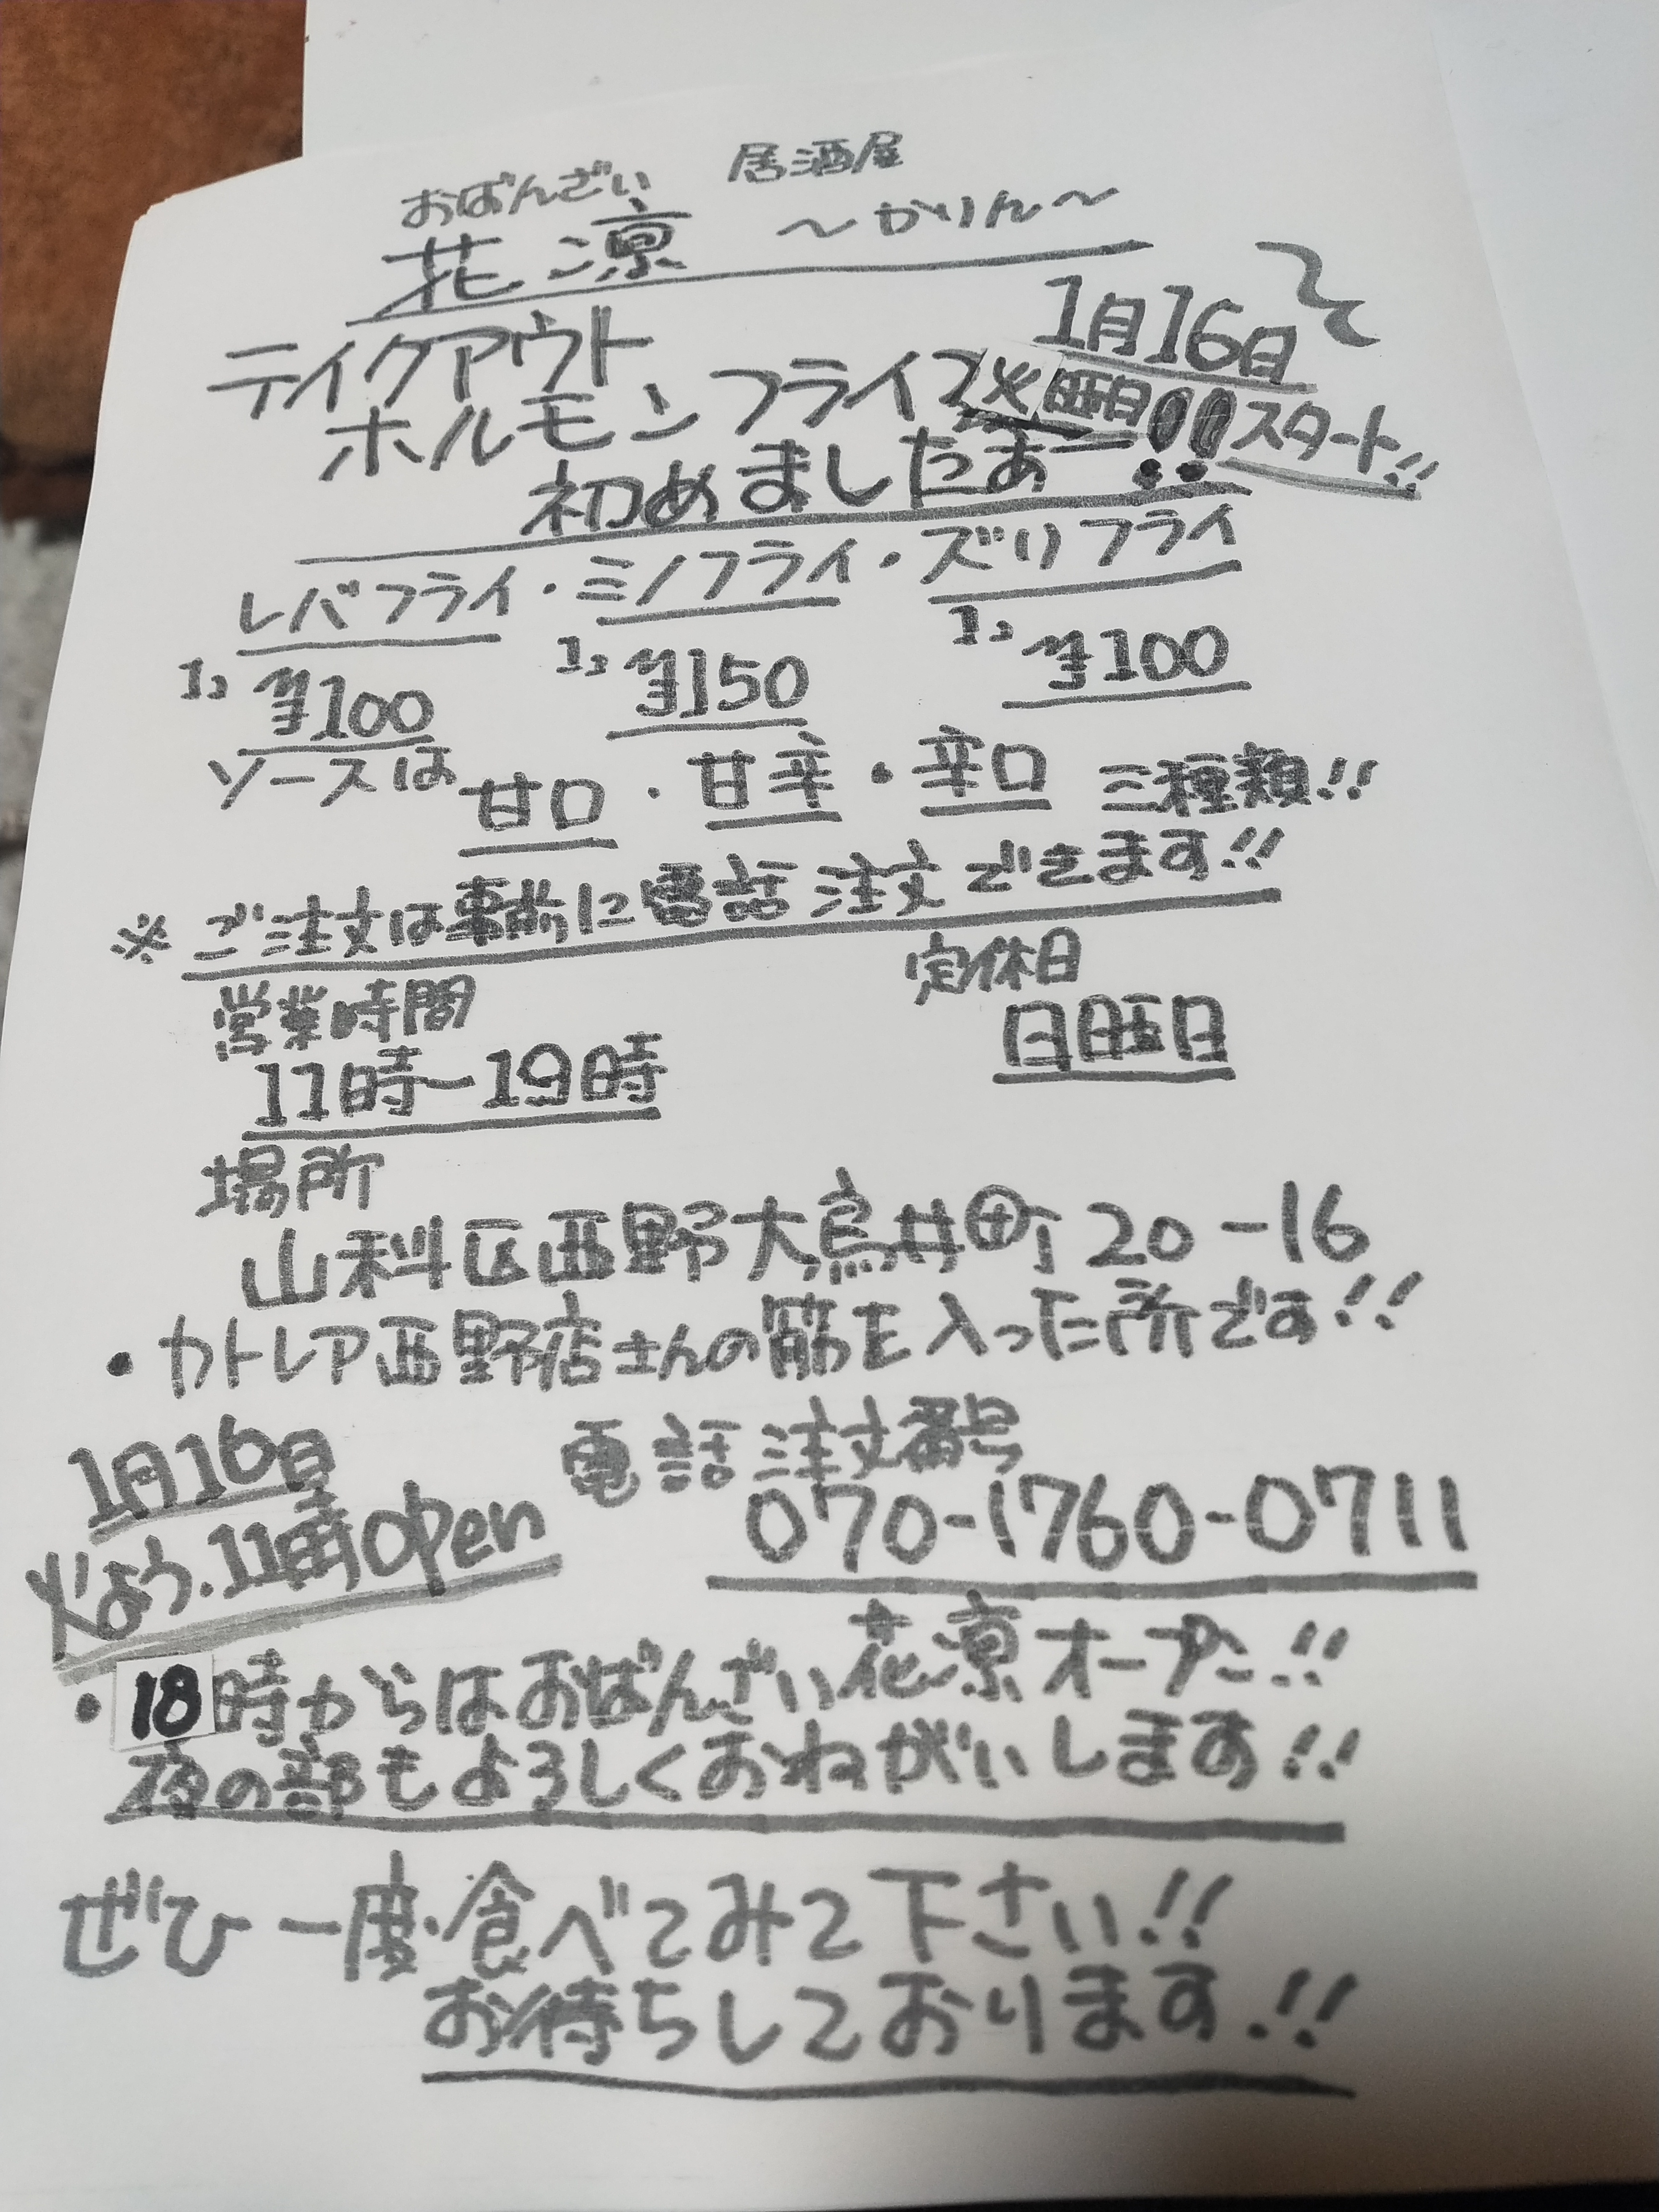 おばんざい 居酒屋
花凛 〜かりん〜
1月16日〜
テイクアウト
ホルモンフライ 火曜日 スタート!!
初めましたぁー!!
レバフライ・ミノフライ・ズリフライ
1コ ¥100 1コ ¥150 1コ ¥100
ソースは 甘口・甘辛・辛口 三種類!!
※ ご注文は事前に電話注文できます!!
営業時間 定休日
11時〜19時 日曜日
場所
山科区西野大鳥井町20-16
・カトレア西野店さんの筋を入った所です!!
1月16日 電話注文番号
火よう.11時open 070-1760-0711
・18時からはおばんざい花凛オープン!!
夜の部もよろしくおねがいします!!
ぜひ一度食べてみて下さい!!
お待ちしております!!